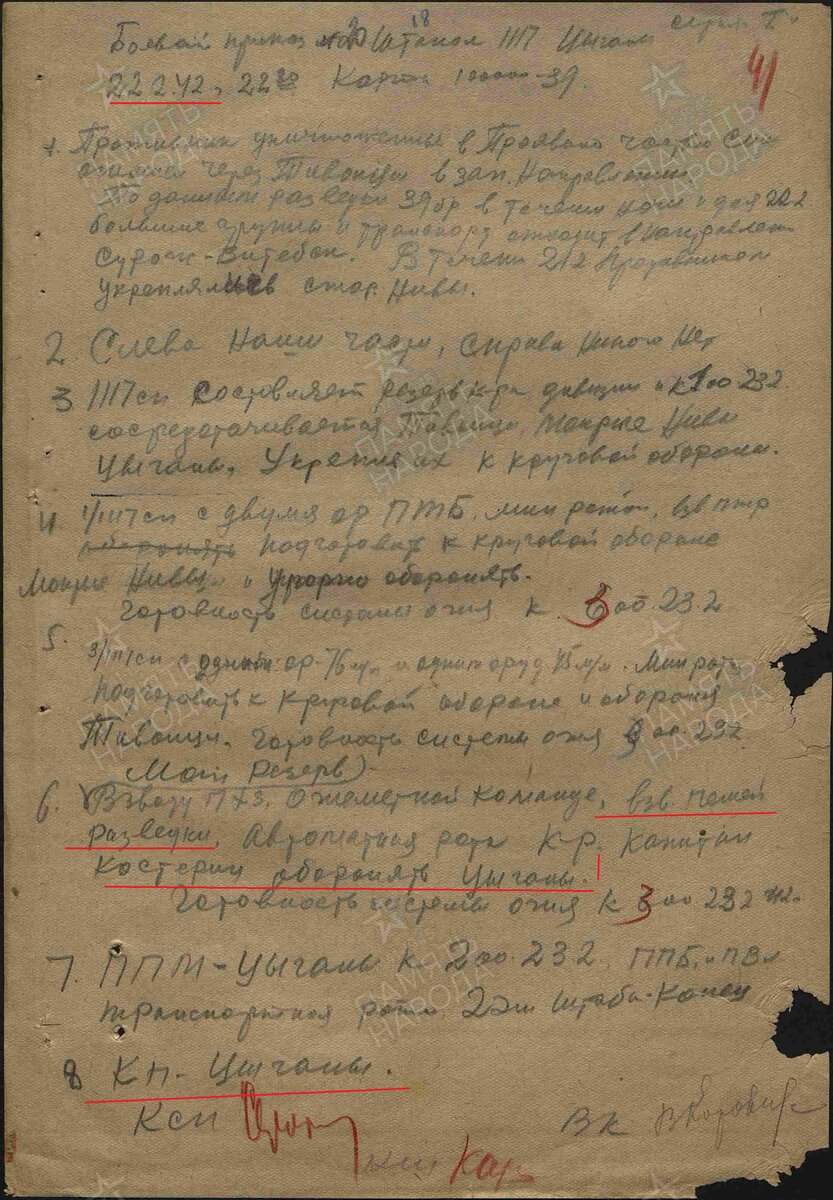 Боевой приказ №20 Штапол 1117 Цыганы серия "Г"
18
22.2.42, 22 Карта 100000-39.
41
1. Противник уничтоженный в части
отошел через Тивонцы в зап. направлении
По данным разведки 39бр в течении ночи и дня 22.2
большие группы и транспорт отходит в направлен
Сураж-Витебск. В течени 21.2 противником
укреплялись Нивы.
2 Слева наши части, справа никого нет
3 1117 сп составляет резерв к-ра дивизии и к 1 00 23.2
сосредотачивается Тивонцы, Мокрые Нивы
Цыганы. Укрепив их к круговой обороне.
4. 1/1117 сп с двумя ор ПТБ. мин ротой, взв птр
оборонять подготовить к круговой обороне
Мокрые Нивы и упорно оборонять.
Готовность системы огня к 3 00 23.2
5. 3/1117 сп с одним ор. 76 м/м и одним оруд 45 м/м. Минрота
подготовить к круговой обороне и обороня
Тивонцы. Готовность системы огня 3 00. 23.2
(Мой Резерв)
6. Взводу ПХЗ, огнеметной команде, взв. пешей
разведки, Автоматная рота К-р. Капитан
Костерин оборонять Цыганы.
Готовность системы огня к 3 00 23.2 42.
7. ППМ-Цыганы к 2 00. 23.2, ППБ, и ПВл
транспортная рота. 2 эш штаба-Конец
8 КП-Цыганы.
КСП
ВК
НШ